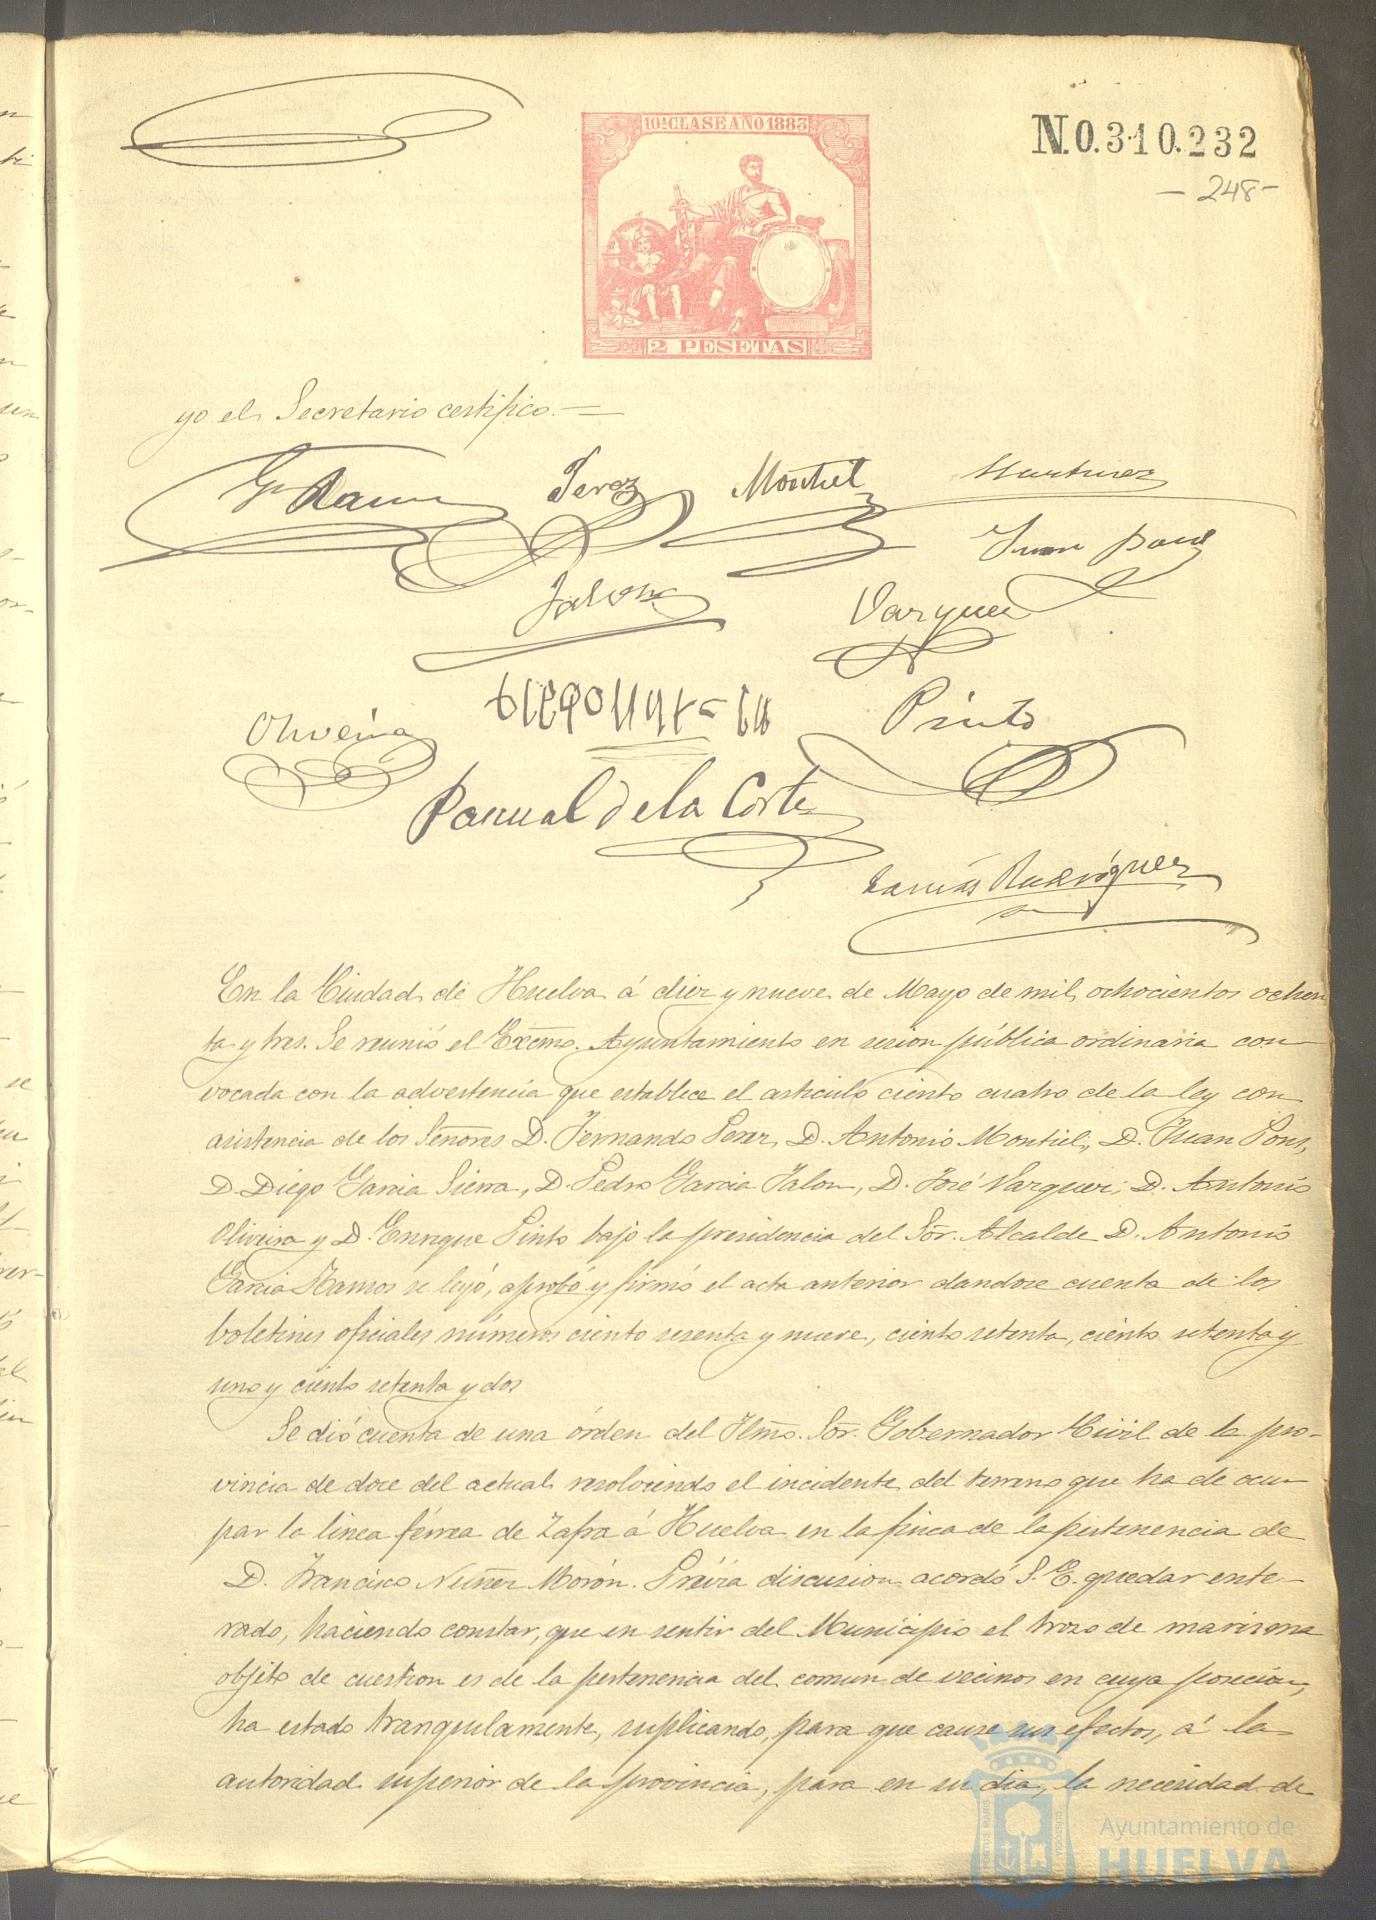 10ª CLASE AÑO 1883
N.0.310.232
- 248 -
2 PESETAS
yo el Secretario certifico.=
Gª Ramos Perez Montiel Martinez
Juan Pons
Jalon Vazquez
Oliveira Pinto
Pascual de la Corte
Tomás Rodríguez
En la Ciudad de Huelva á diez y nueve de Mayo de mil ochocientos ochen
ta y tres. Se reunió el Excmo. Ayuntamiento en sesion pública ordinaria con
vocada con la advertencia que establece el articulo ciento cuatro de la ley con
asistencia de los Señores D. Fernando Perez, D. Antonio Montiel, D. Juan Pons,
D. Diego Garcia Sierra, D. Pedro Garcia Jalon, D. José Vazquez, D. Antonio
Oliveira y D. Enrique Pinto bajo la presidencia del Sor. Alcalde D. Antonio
Garcia Ramos se leyó, aprobó y firmó el acta anterior dandose cuenta de los
boletines oficiales números ciento sesenta y nueve, ciento setenta, ciento setenta y
uno y ciento setenta y dos
Se dió cuenta de una órden del Ilmo. Sor. Gobernador Civil de la pro-
vincia de doce del actual resolviendo el incidente del terreno que ha de ocu
par la linea férrea de Zafra á Huelva en la finca de la pertenencia de
D. Francisco Nuñez Morón. Prévia discusion acordó S. E. quedar ente-
rado, haciendo constar, que en sentir del Municipio el trozo de marisma
objeto de cuestion es de la pertenencia del comun de vecinos en cuya posecion
ha estado tranquilamente, suplicando, para que cause sus efectos, á la
autoridad superior de la provincia, para en su dia, la necesidad de
PORTUS MARIS
Ayuntamiento de
HUELVA